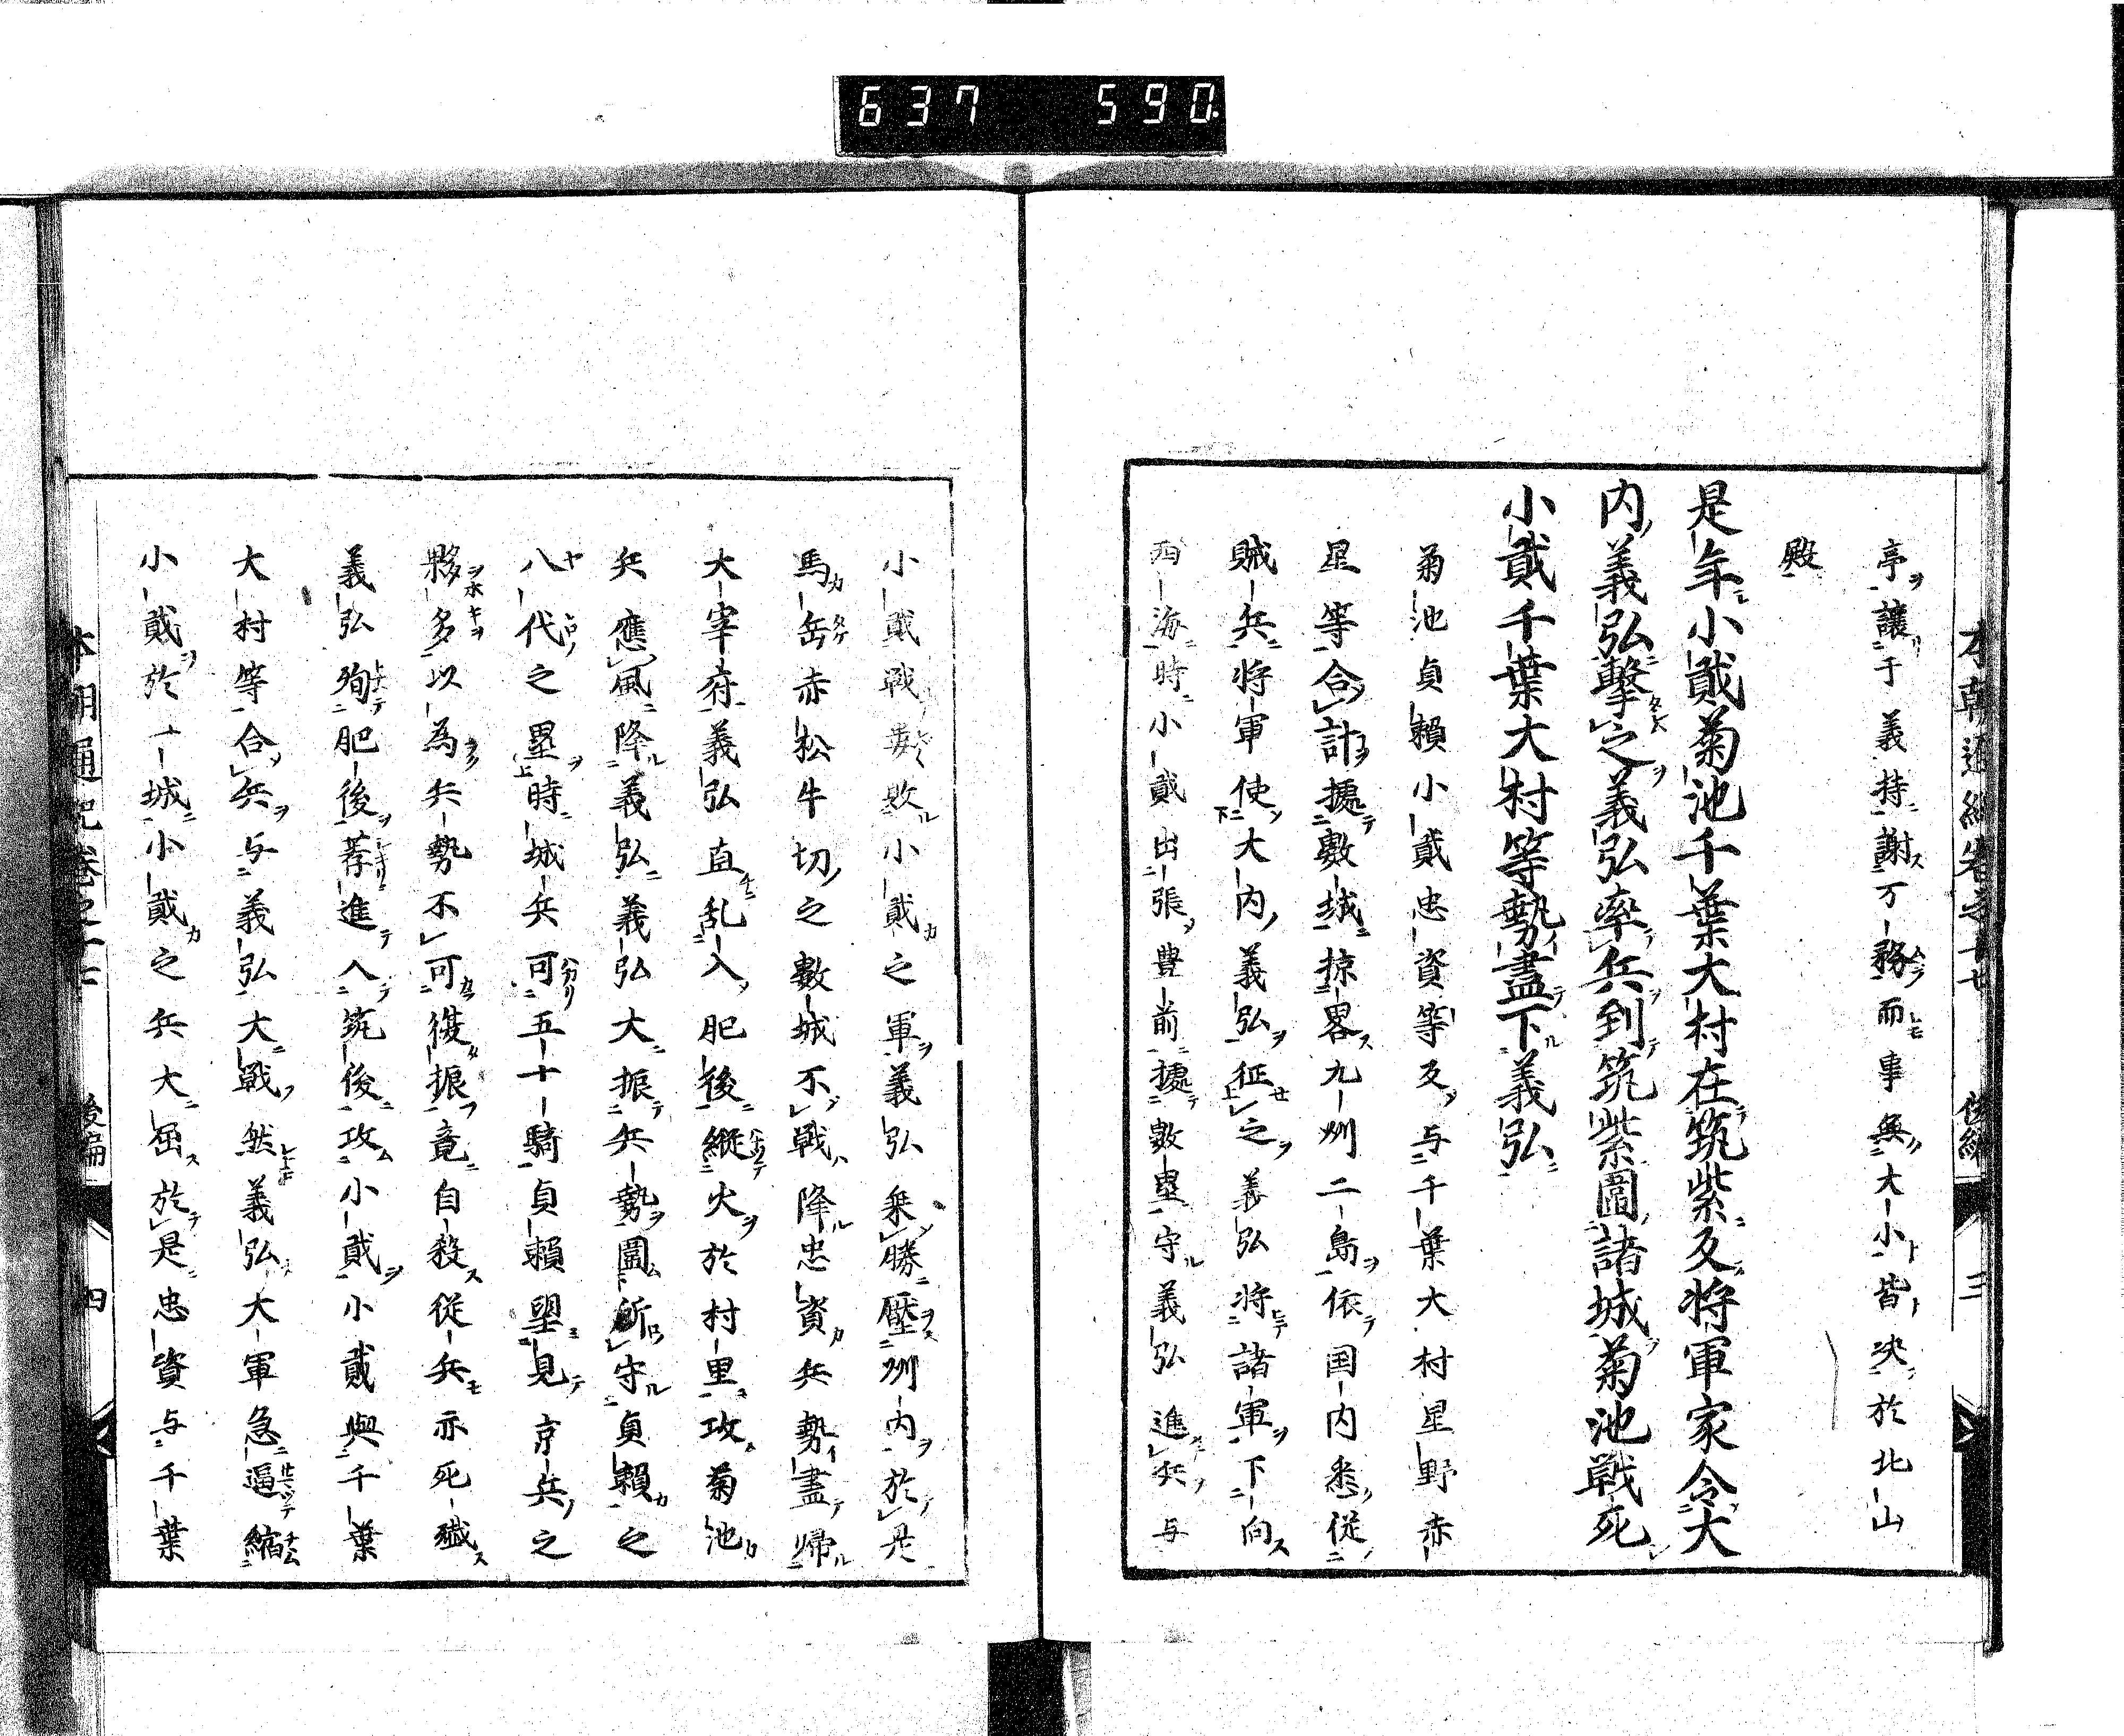 637 590
亭讓于義持謝万務而事無大小皆决於北山
殿
是年小貳菊池千葉大村在筑紫及将軍家令大
内義弘擊之義弘率兵到筑紫圖諸城菊池戦死
小貳千葉大村等勢盡下義弘
菊池貞頼小貳忠資等及与千葉大村星野赤
星等合計據數城掠畧九州二島依国内悉從
賊兵将軍使大内義弘征之義弘将諸軍下向
西海時小貳出張豊前據數塁守義弘進兵与
小貳戦敗小貳之軍義弘乗勝壓州内於是
馬岳赤松牛切之數城不戦降忠資兵勢盡帰
大宰府義弘直乱入肥後縦火於村里攻菊池
兵應風降義弘義弘大振兵勢圖所守貞頼之
八代之塁時城兵可五十騎貞頼望見京兵之
夥多以為兵勢不可復振竟自殺從兵亦死殲
義弘殉肥後荐進入筑後攻小貳小貳與千葉
大村等合兵与義弘大戦然義弘大軍急逼縮
小貳於一城小貳之兵大屈於是忠資与千葉
四